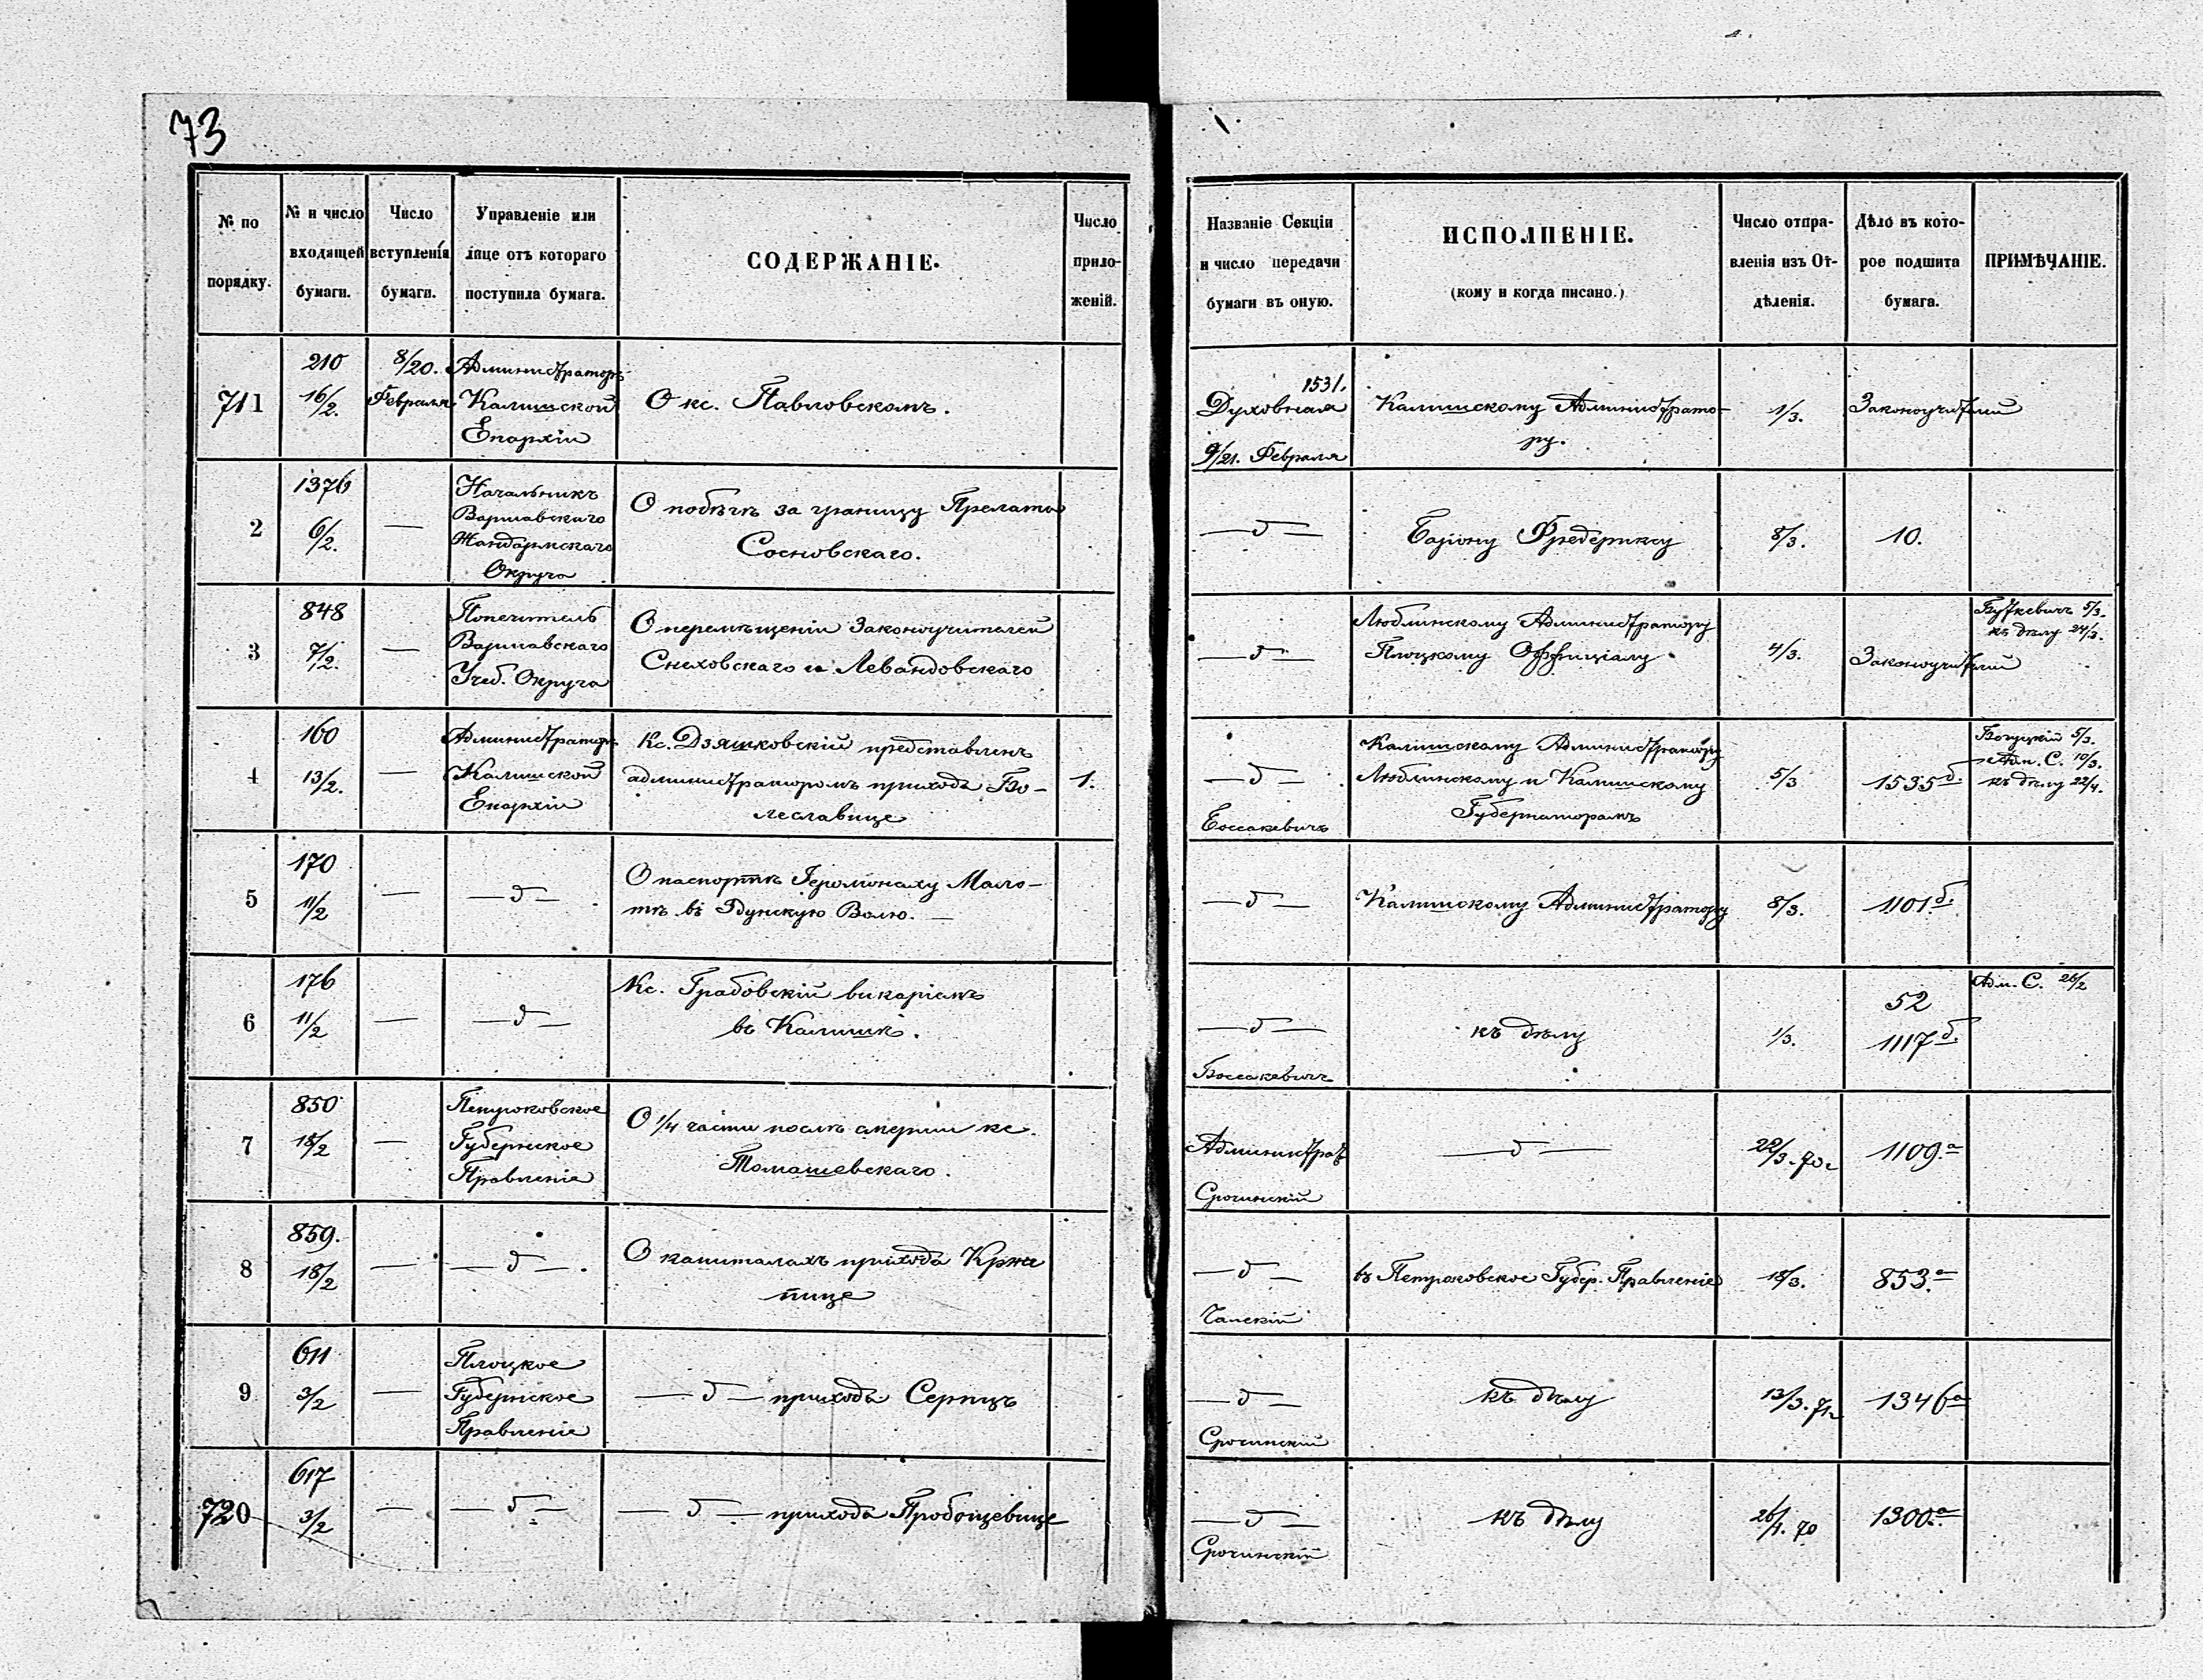 73
№ по порядку.
№ и число входящей бумаги.
Число вступленія бумаги.
Управленіе или лице отъ котораго поступила бумага.
СОДЕРЖАНІЕ.
Число приложеній.
Названіе Секціи и число передачи бумаги въ оную.
ИСПОЛНЕНІЕ.
(кому и когда писано.)
Число отправленія изъ Отдѣленія.
Дѣло въ которое подшита бумага.
ПРИМѢЧАНІЕ.
711
210
16/2.
8/20.
Февраля
Администраторъ
Калишской
Епархіи
О кс. Павловскомъ.
1531.
Духовная
9/21. Февраля
Калишскому Администрато-
ру.
1/3.
Законоучителей
2
1376
6/2.
—
Начальникъ
Варшавскаго
Жандармскаго
Округа
О побѣгѣ за границу Прелата
Сосновскаго.
— д —
Барону Фредериксу
8/3.
10.
3
848
7/2.
—
Попечитель
Варшавскаго
Учеб. Округа
О перемѣщеніи Законоучителей
Снеховскаго и Левандовскаго
— д —
Люблинскому Администратору
Плоцкому Оффиціалу
4/3.
Законоучителей
Буткевичъ 5/3.
къ дѣлу 24/3.
4
160
13/2.
—
Администраторъ
Калишской
Епархіи
Кс. Дзяшковскій представленъ
администраторомъ прихода Бо-
леславице
1.
— д —
Калишскому Администратору
Люблинскому и Калишскому
Губернаторамъ
5/3
1535 б.
5/3.
Адм. С. 10/3.
къ дѣлу 22/4.
5
170
11/2
—
— д —
О паспортѣ Іеромонаху Мало-
тѣ въ Здунскую Волю. —
— д —
Калишскому Администратору
8/3.
1101 б.
6
176
11/2
—
— д —
Кс. Грабовскій викаріемъ
въ Калишѣ.
— д —
Боссакевичъ
къ дѣлу
1/3.
52
1117 б.
Адм. С. 26/2
7
850
18/2
—
Петроковское
Губернское
Правленіе
О 1/4 части послѣ смерти кс.
Томашевскаго.
Администрат
Срочинскій
— д —
22/3. 70 г
1109. а
8
859.
18/2
—
— д —.
О капиталахъ прихода Крже
пице
— д —
Чапскій
въ Петроковское Губер. Правленіе
18/3.
853. а
9
611
3/2
—
Плоцкое
Губернское
Правленіе
— д — прихода Серпцъ
— д —
Срочинскій
къ дѣлу
13/3. 71
1346 а
720
617
3/2
—
— д —
— д — прихода Пробощевице
— д —
Срочинскій
къ дѣлу
26/4. 70
1300. а